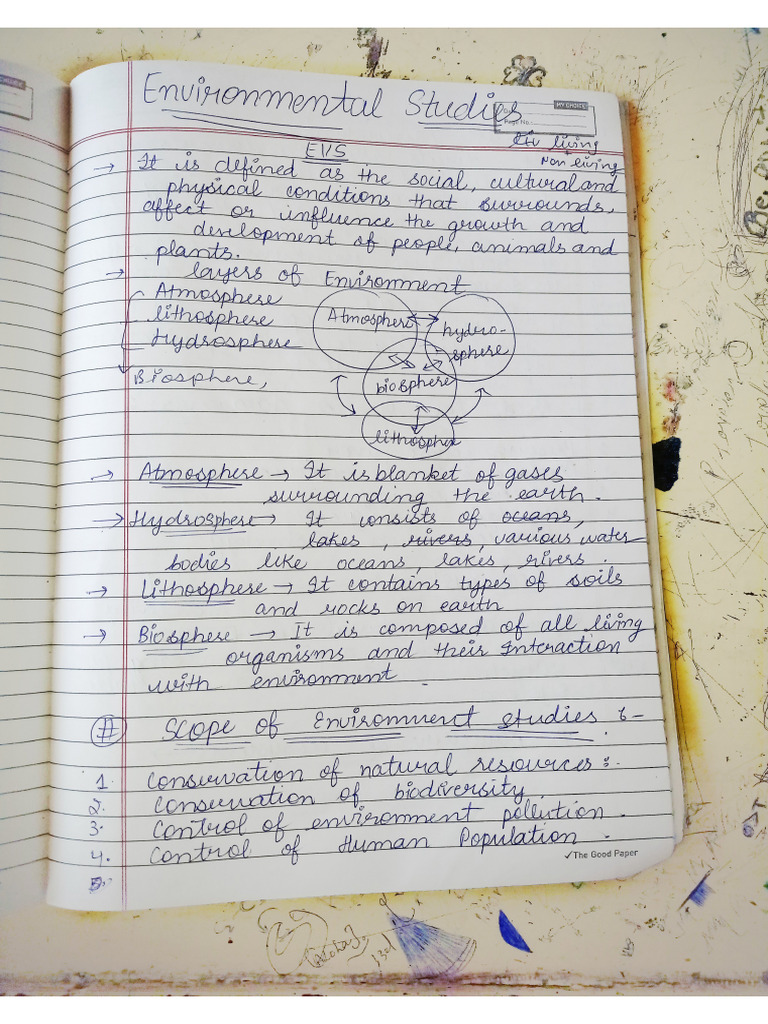 MY CHOICE
Environmental Studies
Page No.
living
Non living
EVS
→ It is defined as the social, cultural and
physical conditions that surrounds,
affect or influence the growth and
development of people, animals and
plants.
→ layers of Environment
Atmosphere
lithosphere
Hydrosphere
Biosphere,
Atmosphere
hydro-
sphere
biosphere
lithosphe
→ Atmosphere → It is blanket of gases
surrounding the earth.
→ Hydrosphere → It consists of oceans,
lakes, rivers, various water
bodies like oceans, lakes, rivers.
→ Lithosphere → It contains types of soils
and rocks on earth
→ Biosphere → It is composed of all living
organisms and their Interaction
with environment.
# Scope of Environment studies :-
1. Conservation of natural resources:-
2. Conservation of biodiversity
3. Control of environment pollution.
4. Control of Human Population.
5.
✓The Good Paper